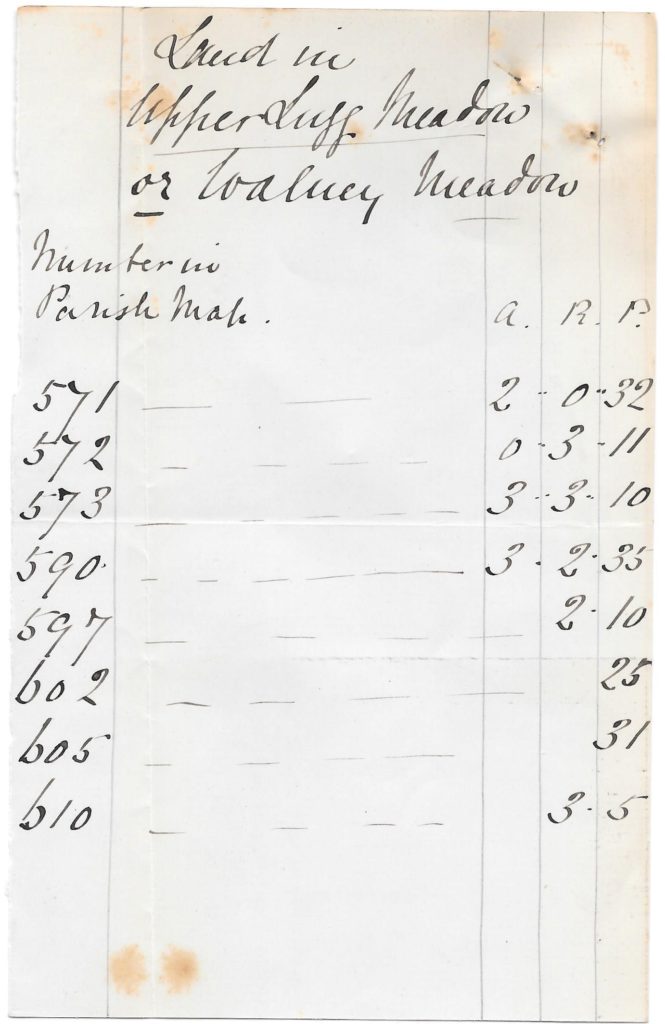 Land in
Upper Lugg Meadow
or Walney Meadow
Number in
Parish Map. A. R. P.
571 — — 2 ·· 0 ·· 32
572 — — — — 0 · 3 · 11
573 — — — — — — 3 ·· 3 · 10
590 — — — — — — 3 · 2 · 35
597 — — — — 2 · 10
602 — — — — 25
605 — — — — 31
610 — — — — 3 · 5